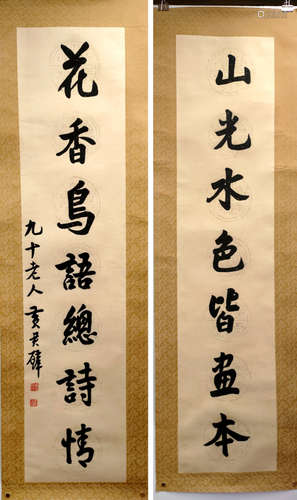 山光水色皆畫本
花香鳥語總詩情
九十老人黃君璧